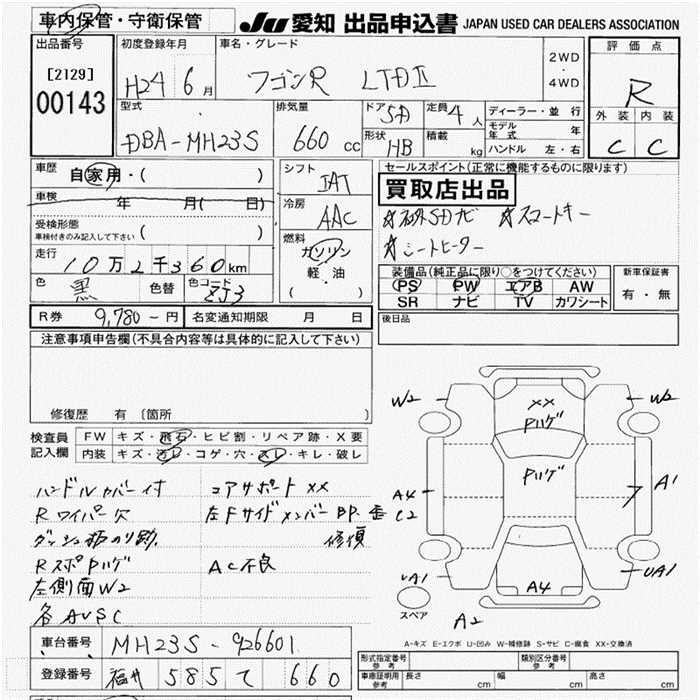 車内保管・守衛保管
JU 愛知 出品申込書 JAPAN USED CAR DEALERS ASSOCIATION
出品番号
[2129]
00143
初度登録年月
H24 6月
車名・グレード
ワゴンR LTDⅡ
2WD
・
4WD
評価点
R
外装 内装
C C
型式
DBA-MH23S
排気量
660 cc
ドア 5D
形状 HB
定員 4人
積載 kg
ディーラー・並行
モデル年式 年
ハンドル 左・右
車歴
自家用・( )
車検
年 月( 日)
受検形態
車検付きのみ記入して下さい ( )
走行
10万2千360km
色 黒 色替 色コード ZJ3
シフト
IAT
冷房
AAC
燃料
ガソリン
軽・油
( )
セールスポイント(正常に機能するものに限ります)
買取店出品
☆社外SDナビ ☆スマートキー
☆シートヒーター
装備品(純正品に限り○をつけてください)
PS PW エアB AW
SR ナビ TV カワシート
新車保証書
有・無
R券 9,780-円 名変通知期限 月 日
後日品
注意事項申告欄(不具合内容等は具体的に記入して下さい)
修復歴 有 [箇所 ]
検査員記入欄
FW キズ・飛石・ヒビ割・リペア跡・X要
内装 キズ・汚レ・コゲ・穴・スレ・キレ・破レ
ハンドルカバー付 コアサポートXX
Rワイパー欠 左Fサイドメンバー BP.歪
修傎
ダッシュ.のり跡.
RスポPハゲ AC不良
左側面W2
各AVSC
W2 XX W2
Pハゲ
Pハゲ
A4
C2
A1
UA1 A4 UA1
スペア A2
A-キズ E-エクボ U-凹み W-補修跡 S-サビ C-腐食 XX-交換済
車台番号 MH23S-926601
登録番号 福井 585 て 660
形式指定番号
参考
類別区分番号
参考
車庫証明用
参考
長さ cm 幅 cm 高さ cm